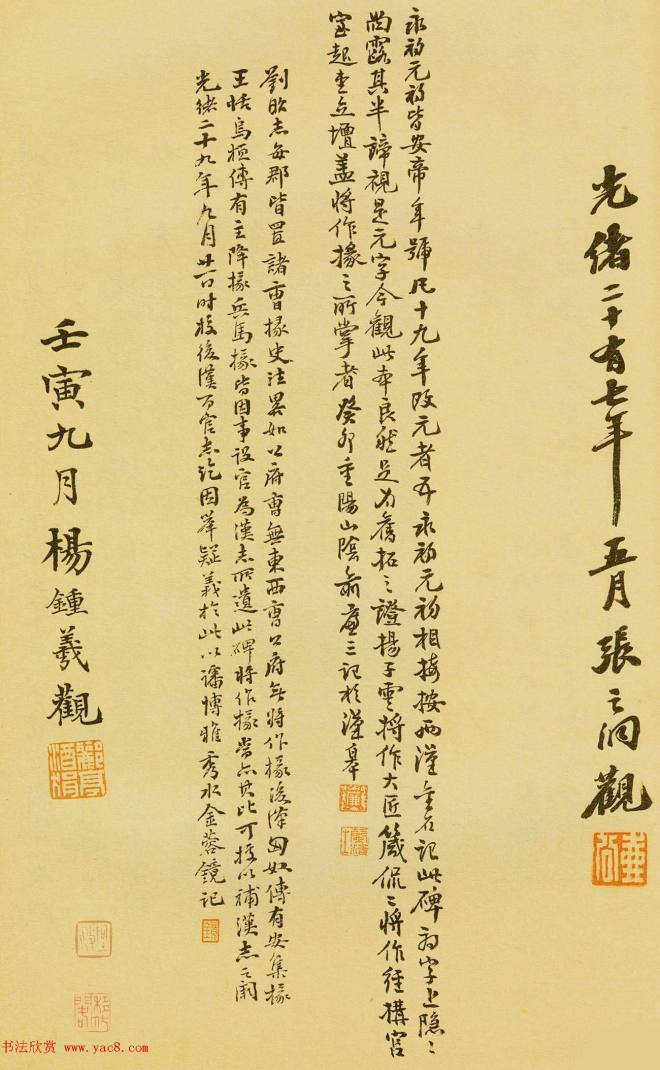 光緒二十有七年五月張之洞觀
永初元初皆安帝年號凡十九年改元者五永初元初相接按西漢金石記此碑初字上隱隱
尚露其半諦視是元字今觀此本良然足為舊拓之證揚子雲將作大匠箴侃侃將作經構宮
室起堂立壇蓋將作掾之所掌者癸卯重陽山陰俞廉三記於漢皋
劉昭志每郡皆置諸曹掾史注略如公府曹無東西曹公府無將作掾後漢匈奴傳有安集掾
王恬烏桓傳有主降掾兵馬掾皆因事設官為漢志所遺此碑將作掾當亦其比可據以補漢志之闕
光緒二十九年九月廿一日時校後漢百官志訖因舉疑義於此以諗博雅秀水金蓉鏡記
壬寅九月楊鍾羲觀
书法欣赏 www.yac8.com